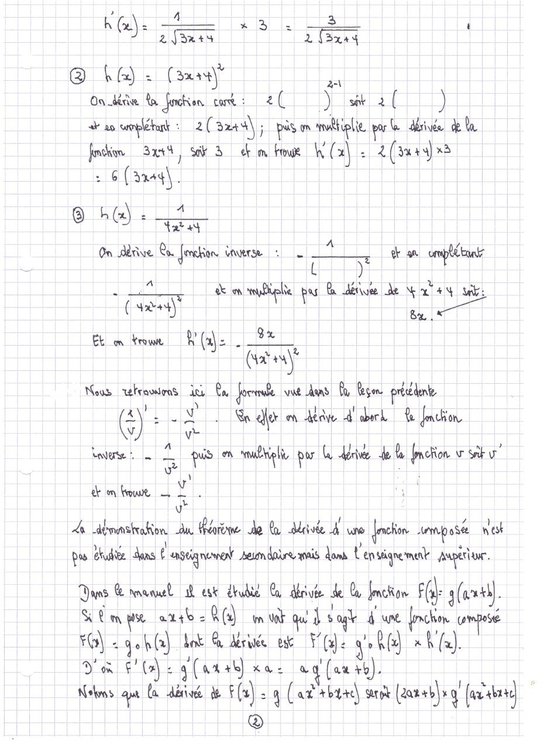 h'(x) = 1/(2√(3x+4)) × 3 = 3/(2√(3x+4))
② h(x) = (3x+4)²
On dérive la fonction carré : 2 ( )²⁻¹ soit 2 ( )
et en complétant : 2 (3x+4) ; puis on multiplie par la dérivée de la
fonction 3x+4, soit 3 et on trouve h'(x) = 2(3x+4)×3
= 6(3x+4).
③ h(x) = 1/(4x²+4)
On dérive la fonction inverse : - 1/( )² et en complétant
- 1/(4x²+4)² et on multiplie par la dérivée de 4x²+4 soit :
8x.
Et on trouve h'(x) = - 8x/(4x²+4)²
Nous retrouvons ici la formule vue dans la leçon précédente
(1/v)' = - v'/v² . En effet on dérive d'abord la fonction
inverse : - 1/v² puis on multiplie par la dérivée de la fonction v soit v'
et on trouve - v'/v² .
La démonstration du théorème de la dérivée d'une fonction composée n'est
pas étudiée dans l'enseignement secondaire mais dans l'enseignement supérieur.
Dans le manuel il est étudié la dérivée de la fonction F(x) = g(ax+b).
Si l'on pose ax+b = h(x) on voit qu'il s'agit d'une fonction composée
F(x) = g∘h(x) dont la dérivée est F'(x) = g'∘h(x) × h'(x).
D'où F'(x) = g'(ax+b) × a = a g'(ax+b).
Notons que la dérivée de F(x) = g(ax²+bx+c) serait (2ax+b) × g'(ax²+bx+c)
②